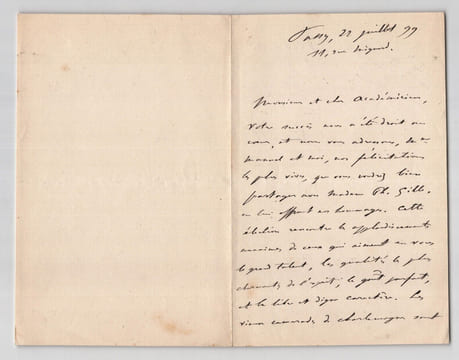 Passy, 22 juillet 99
11, rue Singer.
Monsieur et cher Académicien,
Votre succès nous a été droit au
cœur, et nous vous adressons, Mme
Manuel et moi, nos félicitations
les plus vives, que vous voudrez bien
partager avec Madame Ph. Gille
en lui offrant nos hommages. Cette
élection rencontre les applaudissements
unanimes de ceux qui aiment en vous
le grand talent, les qualités les plus
charmantes de l'esprit, le goût parfait,
et le libre et digne caractère. Les
vieux camarades de Charlemagne sont